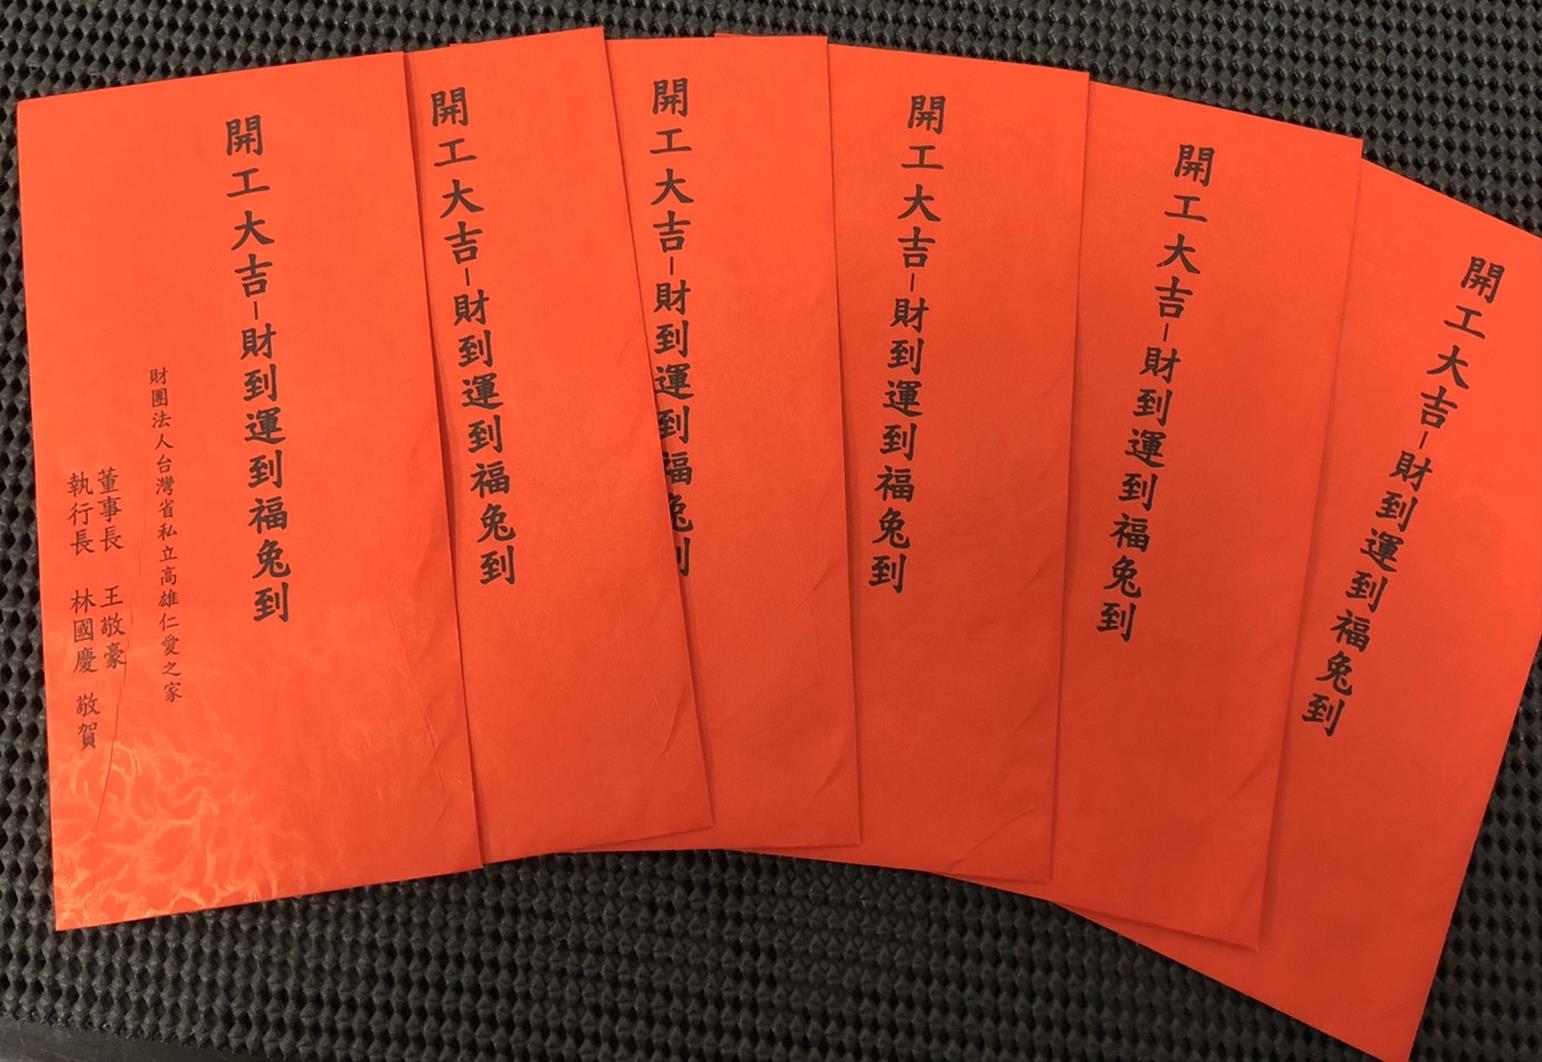 開工大吉-財到運到福兔到
財團法人台灣省私立高雄仁愛之家
董事長 王敬豪
執行長 林國慶 敬賀
開工大吉-財到運到福兔到
開工大吉-財到運到福兔到
開工大吉-財到運到福兔到
開工大吉-財到運到福兔到
開工大吉-財到運到福兔到